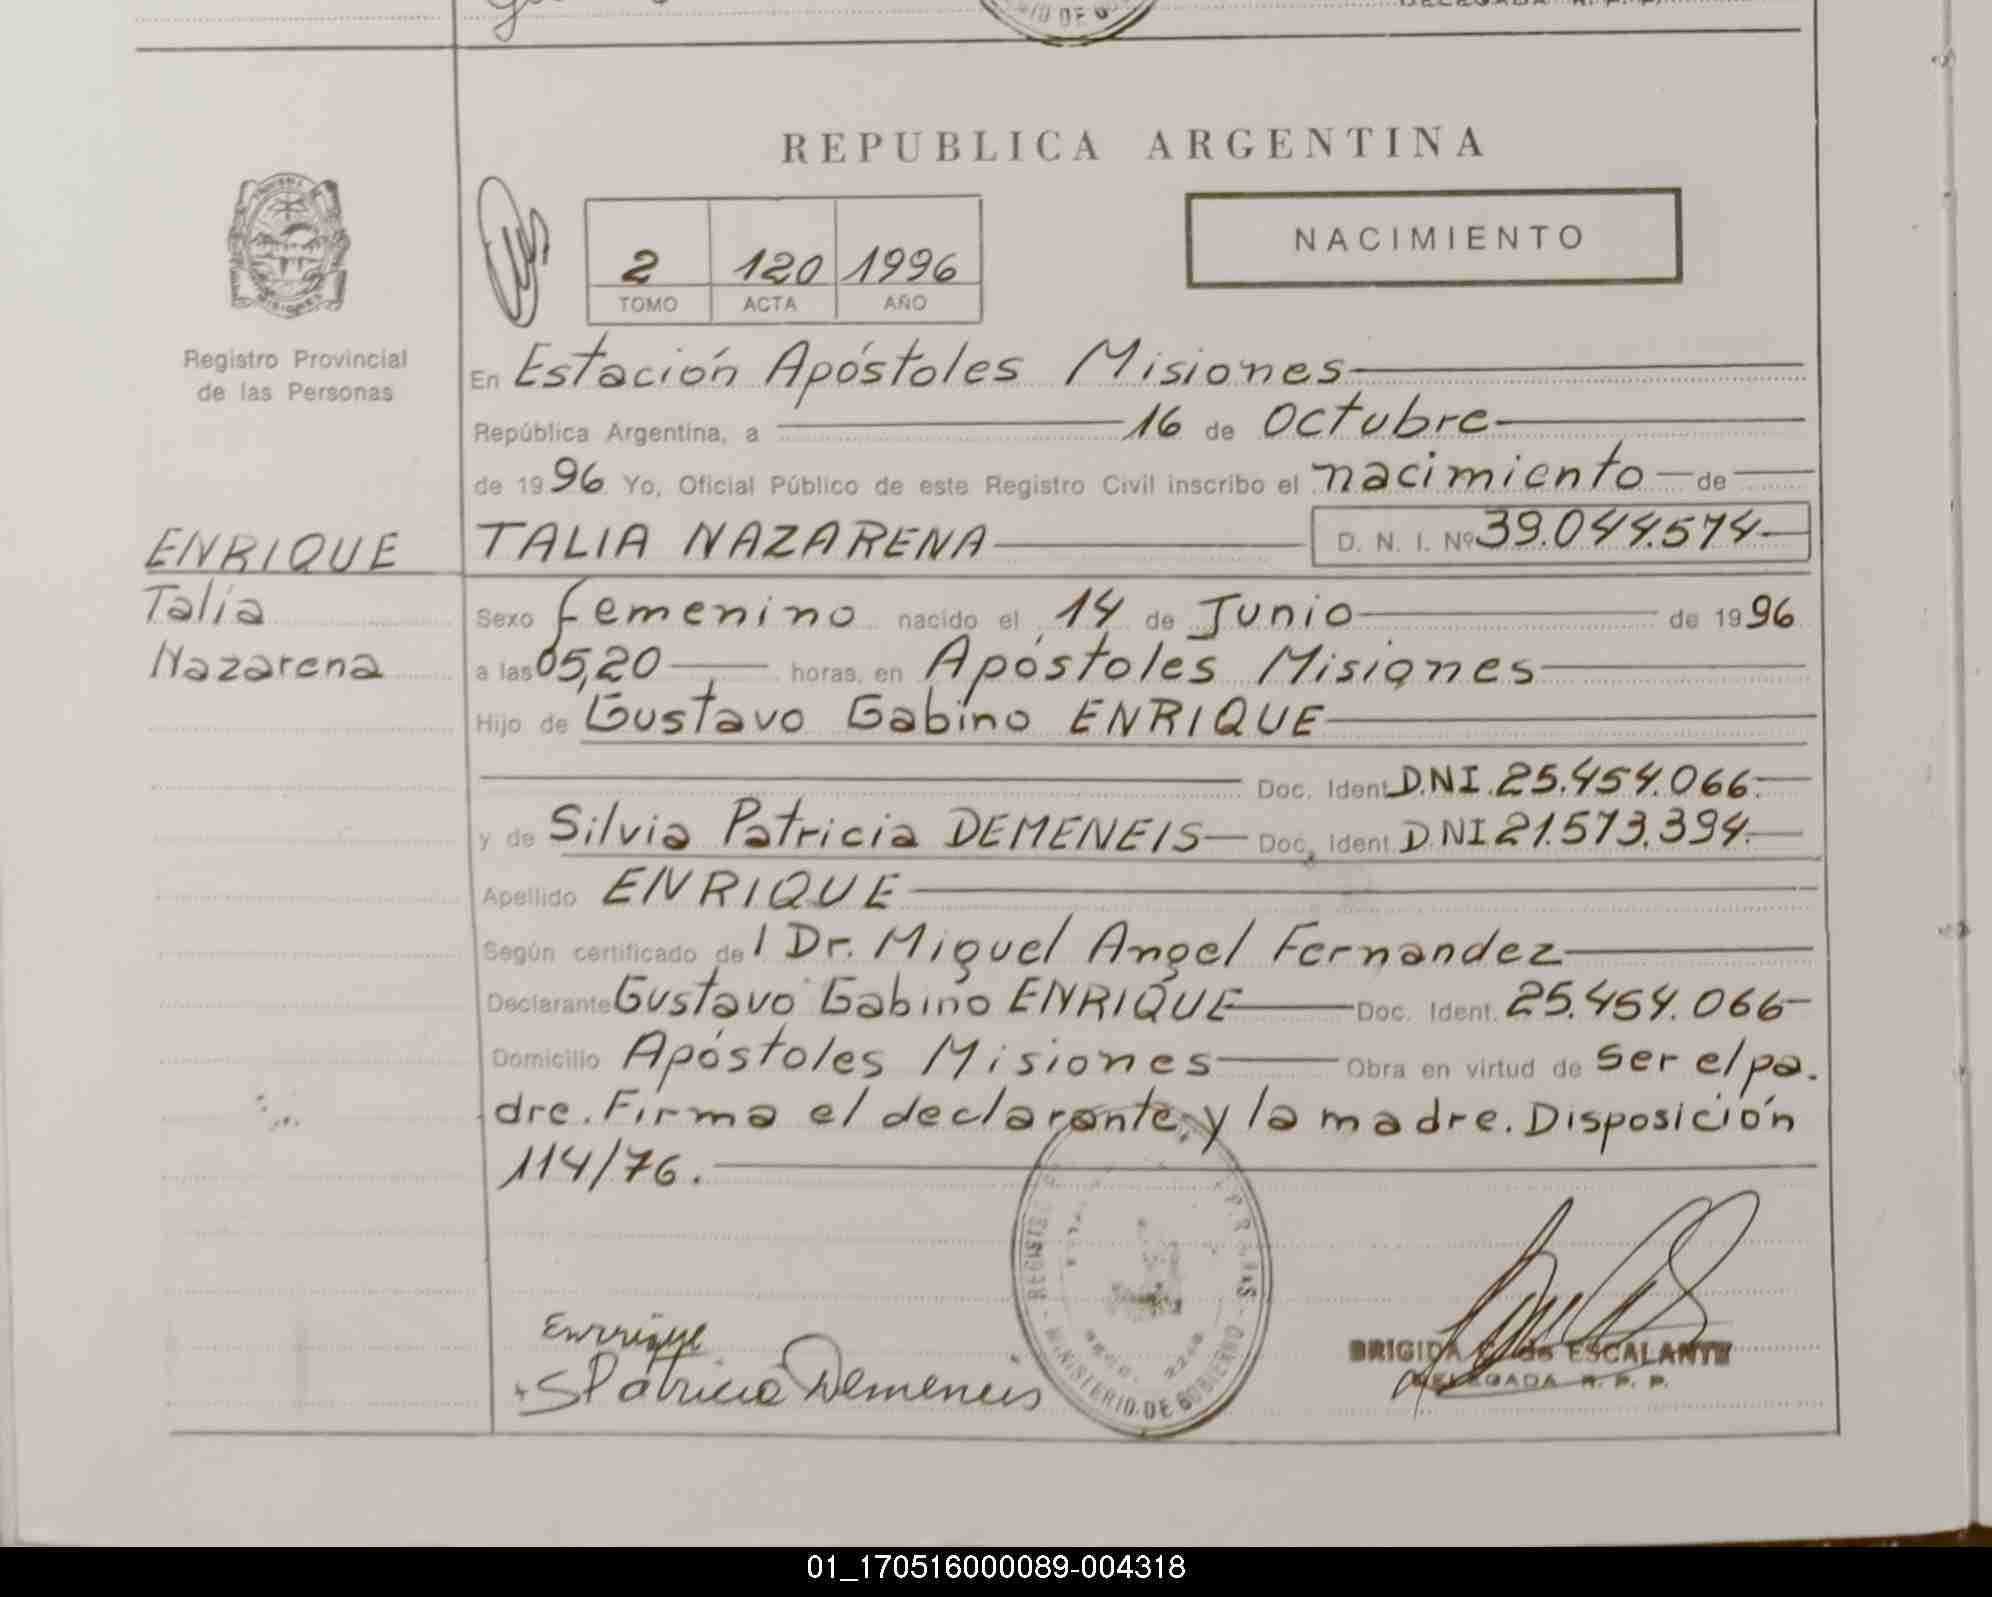 DELEGADA R. P. P.
REPUBLICA ARGENTINA
NACIMIENTO
2 120 1996
TOMO ACTA AÑO
Registro Provincial
de las Personas
En Estación Apóstoles Misiones
República Argentina, a 16 de Octubre
de 1996 Yo, Oficial Público de este Registro Civil inscribo el nacimiento de
ENRIQUE TALIA NAZARENA D. N. I. Nº 39.044.574
Talia
Nazarena
Sexo femenino nacido el 14 de Junio de 1996
a las 05,20 horas, en Apóstoles Misiones
Hijo de Gustavo Gabino ENRIQUE
Doc. Ident. D.NI. 25.454.066.
y de Silvia Patricia DEMENEIS Doc. Ident. D.NI 21.573.394.
Apellido ENRIQUE
Según certificado del Dr. Miguel Angel Fernandez
Declarante Gustavo Gabino ENRIQUE Doc. Ident. 25.454.066
Domicilio Apóstoles Misiones Obra en virtud de ser el pa.
dre. Firma el declarante y la madre. Disposición
114/76.
Enrrique
S Patricia Demeneis
MINISTERIO DE GOBIERNO
BRIGIDA de ESCALANTE
DELEGADA R. P. P.
01_170516000089-004318